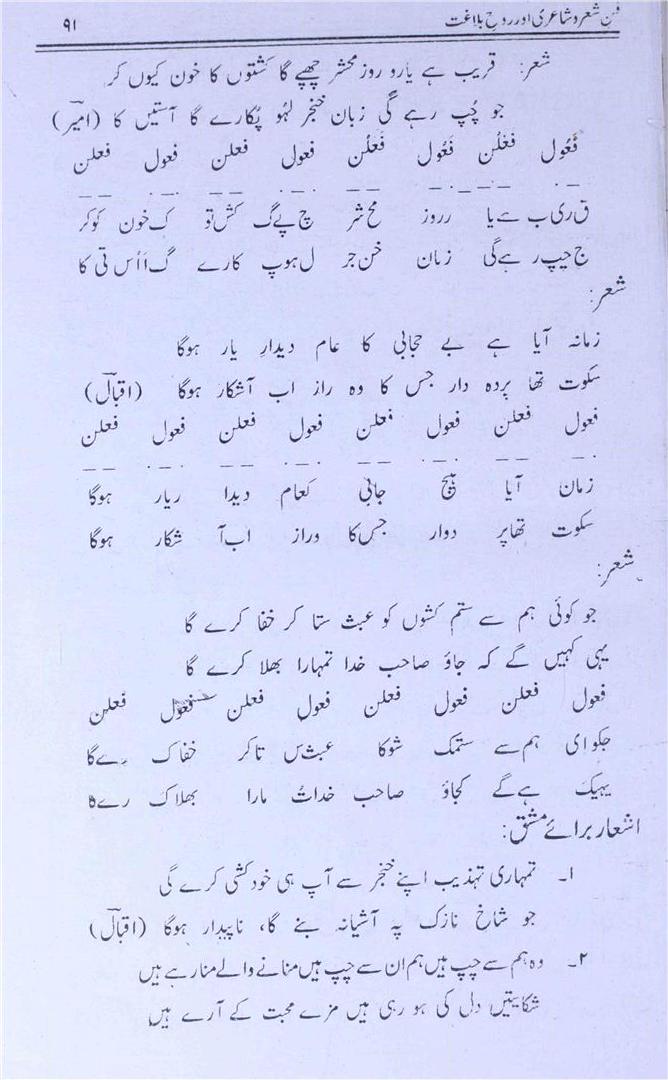 فنِ شعر و شاعری اور روحِ بلاغت ۹۱
شعر: قریب ہے یارو روزِ محشر چھپے گا کشتوں کا خون کیوں کر
جو چُپ رہے گی زبان خنجر لہُو پُکارے گا آستیں کا (امیرؔ)
فَعُول فَعْلُن فَعُول فَعْلُن فعول فعلن فعول فعلن
ق ری ب سے یا رروز مح شر چ پے گ کش تو ک خون کو کر
ج چپ ر ہے گی زبان خن جر ل ہو پ کارے گ ا اُس تی کا
شعر:
زمانہ آیا ہے بے حجابی کا عام دیدارِ یار ہوگا
سکوت تھا پردہ دار جس کا وہ راز اب آشکار ہوگا (اقبالؔ)
فعول فعلن فعول فعلن فعول فعلن فعول فعلن
زمان آیا ہیج جابی کعام دیدا ریار ہوگا
سکوت تھاپر دوار جس کا وراز اب آ شکار ہوگا
شعر:
جو کوئی ہم سے ستم کشوں کو عبث ستا کر خفا کرے گا
یہی کہیں گے کہ جاؤ صاحب خدا تمہارا بھلا کرے گا
فعول فعلن فعول فعلن فعول فعلن فعول فعلن
جکو ای ہم سے ستمک شوکا عبث س تاکر خفاک رے گا
یہیک ہے گے کجاؤ صاحب خداتُ مارا بھلاک رے گا
اشعار برائے مشق:
۱۔ تمہاری تہذیب اپنے خنجر سے آپ ہی خودکشی کرے گی
جو شاخ نازک پہ آشیانہ بنے گا، ناپیدار ہوگا (اقبالؔ)
۲۔ وہ ہم سے چپ ہیں ہم ان سے چپ ہیں منانے والے منا رہے ہیں
شکایتیں دل کی ہو رہی ہیں مزے محبت کے آرے ہیں